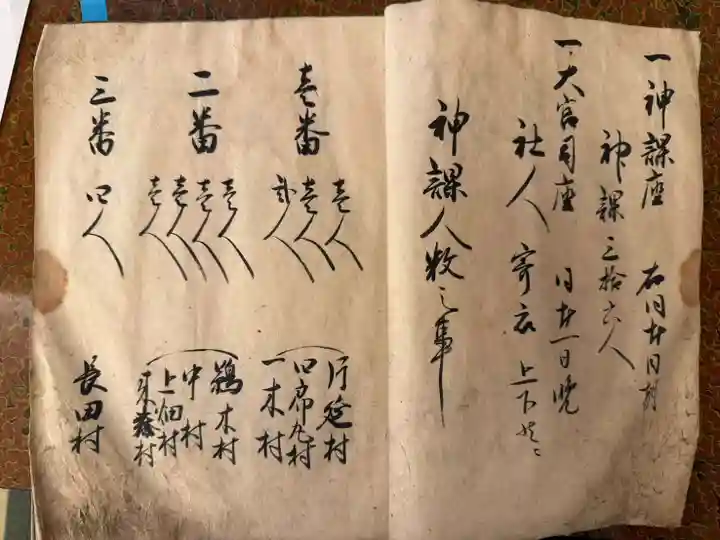 一神課座 右同廿日
神課三拾六人
一、大宮司座 同廿一日晩
社人 寄衣 上下
神課人数之事
壱番 壱人 片延村
壱人 四席丸村
弐人 一木村
二番 壱人 鵜木村
壱人 中村
壱人 上畑村
壱人
三番 四人 長田村